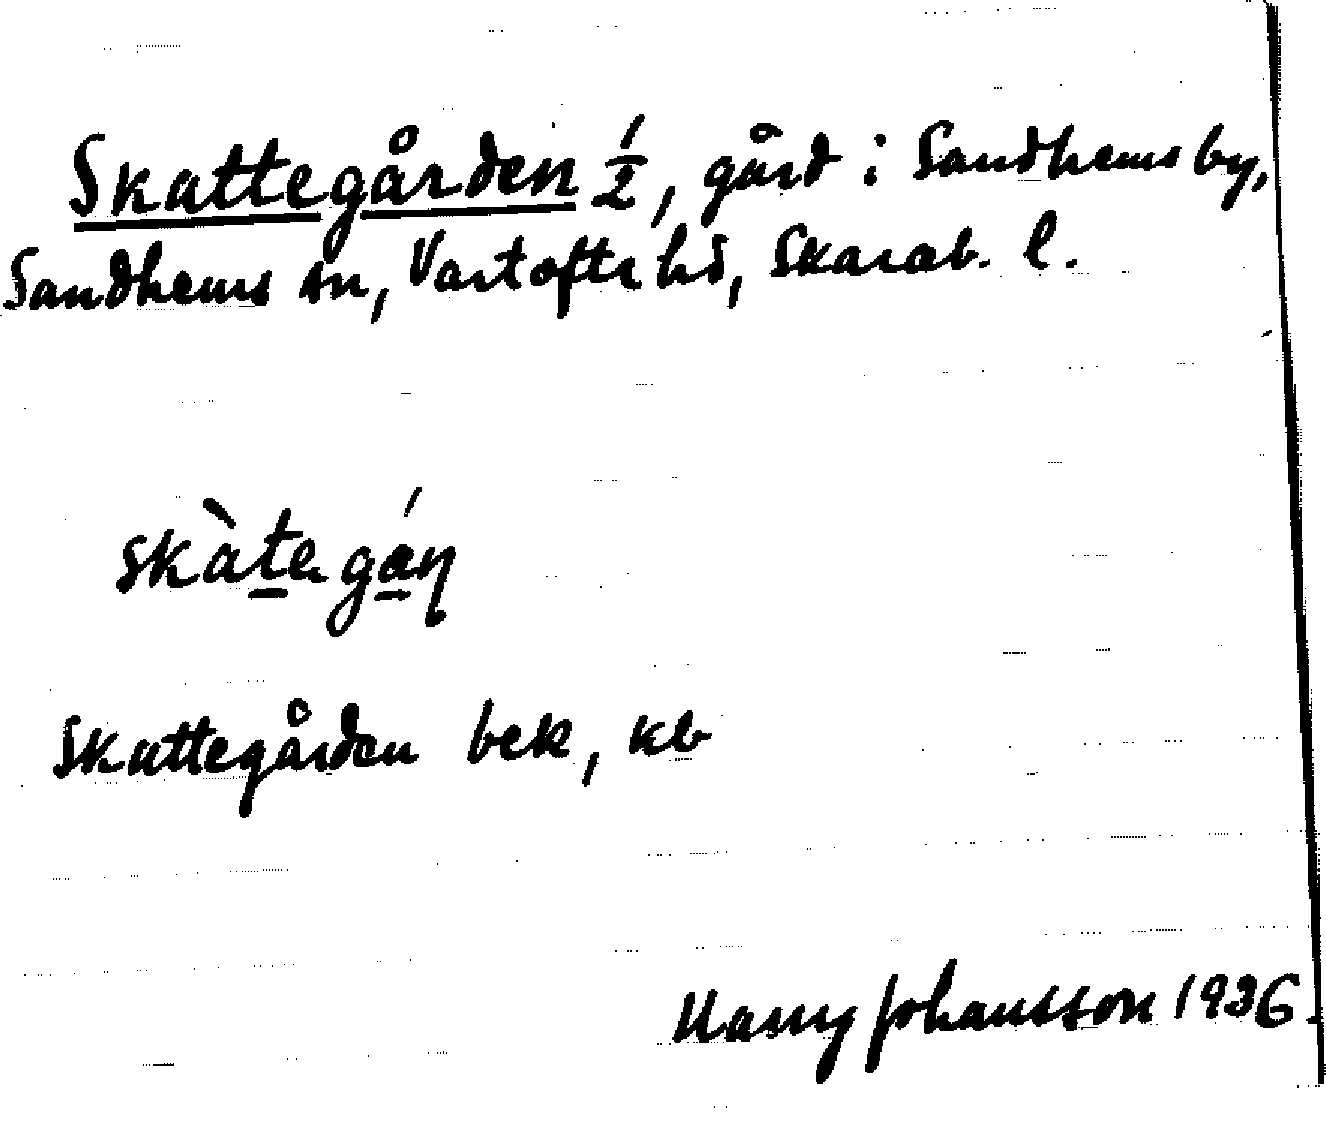 Skattegården 1/2, gård i Sandhems by,
Sandhems sn, Vartofta hd, Skarab. l.
skàt̲egá̲ɳ
Skattegården bek, kb
Harry Johansson 1936.